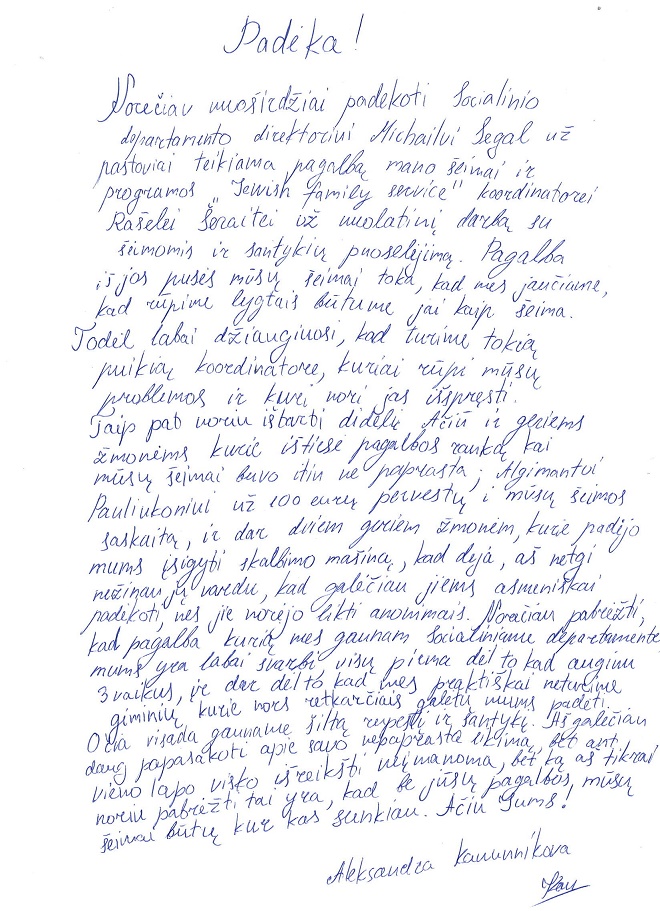 Padėka!
Norėčiau nuoširdžiai padėkoti Socialinio
departamento direktoriui Michailui Segal už
pastoviai teikiama pagalbą mano šeimai ir
programos „Jewish family service" koordinatorei
Rašelei Šeraitei už nuolatinį darbą su
šeimomis ir santykių puoselėjimą. Pagalba
iš jos pusės mūsų šeimai toka, kad mes jaučiame,
kad rūpime lygtais būtume jai kaip šeima.
Todėl labai džiauginosi, kad turime tokią
puikią koordinatore, kuriai rūpi mūsų
problemos ir kuri nori jas išspręsti.
Taip pat noriu ištarti didelį Ačiū ir geriems
žmonėms kurie ištiesė pagalbos ranką kai
mūsų šeimai buvo itin ne paprasta; Algimantui
Pauliukoniui už 100 eurų pervestų i mūsų šeimos
saskaitą, ir dar dviem geriem žmonėm, kurie padėjo
mums įsigyti skalbimo mašiną, kad deja, aš netgi
nežinau jų vardu, kad galėčiau jiems asmeniškai
padėkoti, nes jie norėjo likti anonimais. Norėčiau pabrėžti,
kad pagalba kurią mes gaunam Socialiniame departamente
mums yra labai svarbi visų pirma dėl to kad auginu
3 vaikus, ir dar dėl to kad mes praktiškai neturime
giminių kurie nors retkarčiais galėtų mums padėti.
O čia visada gauname šiltą rupestį ir santykį. Aš galėčiau
daug papasakoti apie savo nepaprastą likimą, bet ant
vieno lapo visko išreikšti neįmanoma, bet ką aš tikrai
noriu pabrėžti tai yra, kad be jūsų pagalbos, mūsų
šeimai būtų kur kas sunkiau. Ačiu Jums!
Aleksandra Kanunnikova